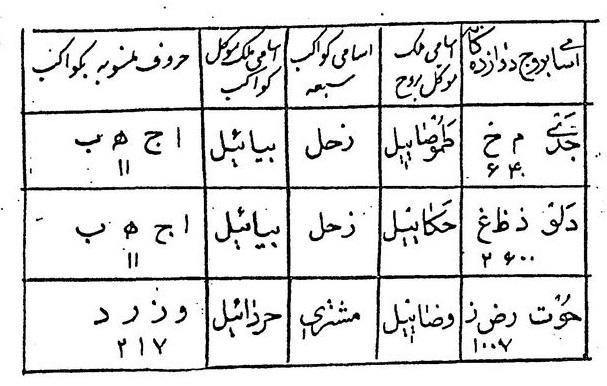 اسامی بروج دوازده گانه
اسامی ملک موکل بروج
اسامی کواکب سبعه
اسامی ملک موکل کواکب
حروف منسوبه بکواکب
جدی م خ
۶۴۰
زحل
بیائیل
ا ج ه ب
۱۱
دلو ذ ظ غ
۲۶۰۰
حکاییل
زحل
بیائیل
ا ج ه ب
۱۱
حوت ر ض ز
۱۰۰۷
وضاییل
مشتری
حرذائیل
و ز ر د
۲۱۷